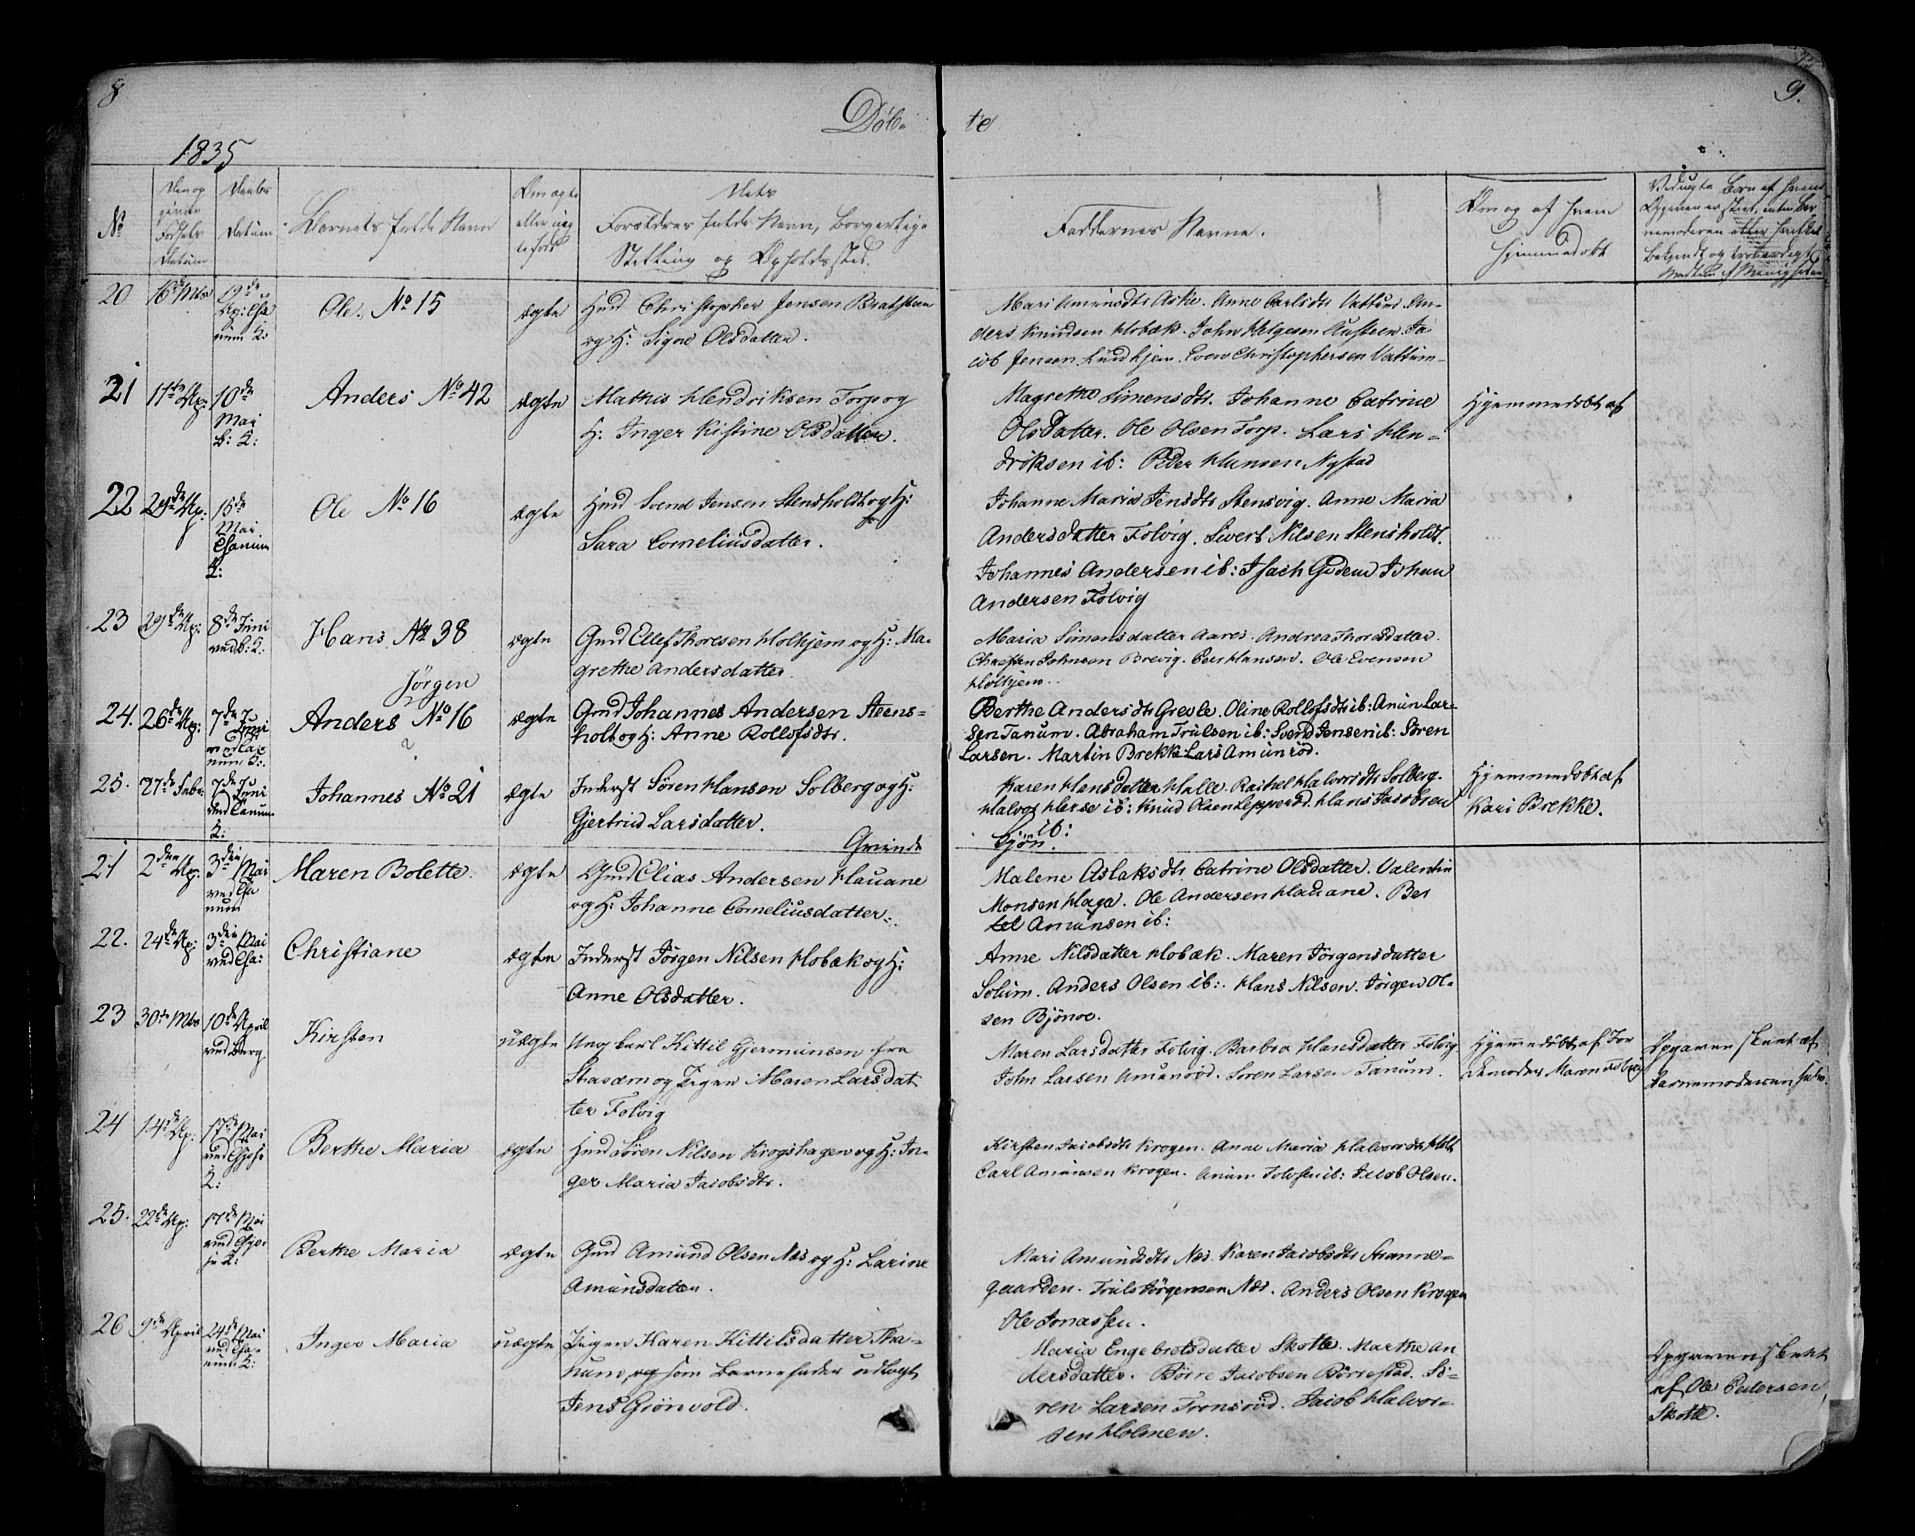 8
9.
Döb-
te
1835
No
Den op
givne
Födsels
Datum
Daabs
Datum
Barnets fulde Navn
Om ægte
eller uæg
te födt
Dets
Forældres fulde Navn, Borgerlige
Stilling og Opholdssted.
Faddernes Navne.
Om og af hvem
hjemmedöbt
20
16de Mts
Ole. No 15
ægte
Huusmd Christopher Jensen Bratsteen
og H: Signe Olsdatter.
Mari Amundsdtr Aske. Anne Carlsdtr Vattum. An-
ders Knudsen Hobæk. John Helgesen Austeen. Ja
cob Jensen Lundhjem. Even Christophersen Vattum-
21
17de Ap:
10de
Mai
B: K:
Anders No 42
ægte
Mathis Hendriksen Torp og
H: Inger Kistine Olsdatter.
Magrethe Simensdtr. Johanne Catrine
Olsdatter. Ole Olsen Torp. Lars Hen-
driksen ib: Peder Hansen Nystad
Hjemmedöbt af
22
29de Ap:
15de
Mai
Tanum
K:
Ole No 16
ægte
Huusmd Svend Jensen Stensholdt og H:
Sara Corneliusdatter.
Johanne Maria Jensdtr Stensvig. Anne Maria
Andersdatter Folvig. Sivert Nilsen Stensholdt.
Johannes Andersen ib: Isach Gudem Johan
Andersen Folvig
23
29de Ap:
8de Juni
ved B: K:
Hans. No 38
ægte
Gmd Ellef Thoresen Holhjem og H: Ma-
grethe Andersdatter.
Maria Simensdatter Aares. Andrea Thorsdatter.
Christen Johnsen Brevig. Peer Hansen. Ole Evensen
Holhjem.
24.
26de Ap:
7de Juni
ved Ta-
num K:
Jörgen
Anders No 16
ægte
Gmd Johannes Andersen Steens-
holt og H: Anne Rollofsdtr.
Berthe Andersdtr Grevle. Oline Rollofsdtr ib: Amun Lar-
sen Tanum. Abraham Trulsen ib: Svend Jensen ib: Sören
Larsen. Martin Brekk Lars Amunröd.
25.
27de Febr:
7de Juni
ved Tanum
K:
Johannes No 21
ægte
Inderst Sören Hansen Solberg og H:
Gjertrud Larsdatter.
Karen Hansdatter Halle. Rachel Halvorsdtr Solberg.
Halvor Herse ib: Knud Olsen Lepperöd. Hans Jacobsen
ib:
Hjemmedöbt af
Kari Brekke.
Qvinde
Kjön.
21
2den Ap:
3die Mai
ved Ta
num
Maren Bolette
ægte
Gmd Elias Andersen Hauane
og H: Johanne Corneliusdatter.
Malene Aslaksdtr. Catrine Olsdatter. Valentin
Monsen Haga. Ole Andersen Hauane. Ber
tel Amunsen ib:
22.
24de Ap:
3die Mai
ved Ta:
Christiane
ægte
Inderst Jörgen Nilsen Hobæk og H:
Anne Olsdatter.
Anne Nilsdatter Hobæk. Maren Jörgensdatter
Solum. Anders Olsen ib:. Hans Nilsen. Jörgen Ol-
sen Björnö.
23
30te Mts
10de April
ved Berg.
Kirsten
uægte
Ungkarl Kittil Gjermunsen fra
og Pigen Maren Larsdat
ter Folvig
Maren Larsdatter Folvig. Barbro Hansdatter Folvig
John Larsen Amunröd. Sören Larsen Tanum.
Hjemmedöbt af Jor
demoder Maren
Opgaven skeet af
Barnemoderen selv.
24
14de Ap:
17de Mai
K:
Berthe Maria
ægte
Huusmd Sören Nilsen Krogshagen og H: In-
ger Maria Jacobsdtr.
Kirsten Jacobsdtr Krogen. Anne Maria Halvorsdtr Holt
Carl Amunsen Krogen. Amun Tolvsen ib: Jacob Olsen.
25.
22de Ap:
17de Mai
K:
Berthe Maria
ægte
Gmd Amund Olsen Næs og H: Larine
Amunsdatter.
Mari Amundsdtr Næs. Karen Jacobsdtr Strannе-
gaarden. Truls Jörgensen Næs. Anders Olsen Krogen
Ole Jonassen.
26
9de April
24de Mai
ved Ta-
num K:
Inger Maria
uægte
Pigen Karen Kittilsdatter Tha-
num, og som Barnefader udlagt
Jens Grönvold.
Maria Engebretsdatter Skotte. Marthe An
dersdatter. Börre Jacobsen Börrestad. Sö-
ren Larsen Tronsröd. Jacob Halvor-
sen Holmen.
Opgaven skeet
af Ole Pedersen
Skotte.